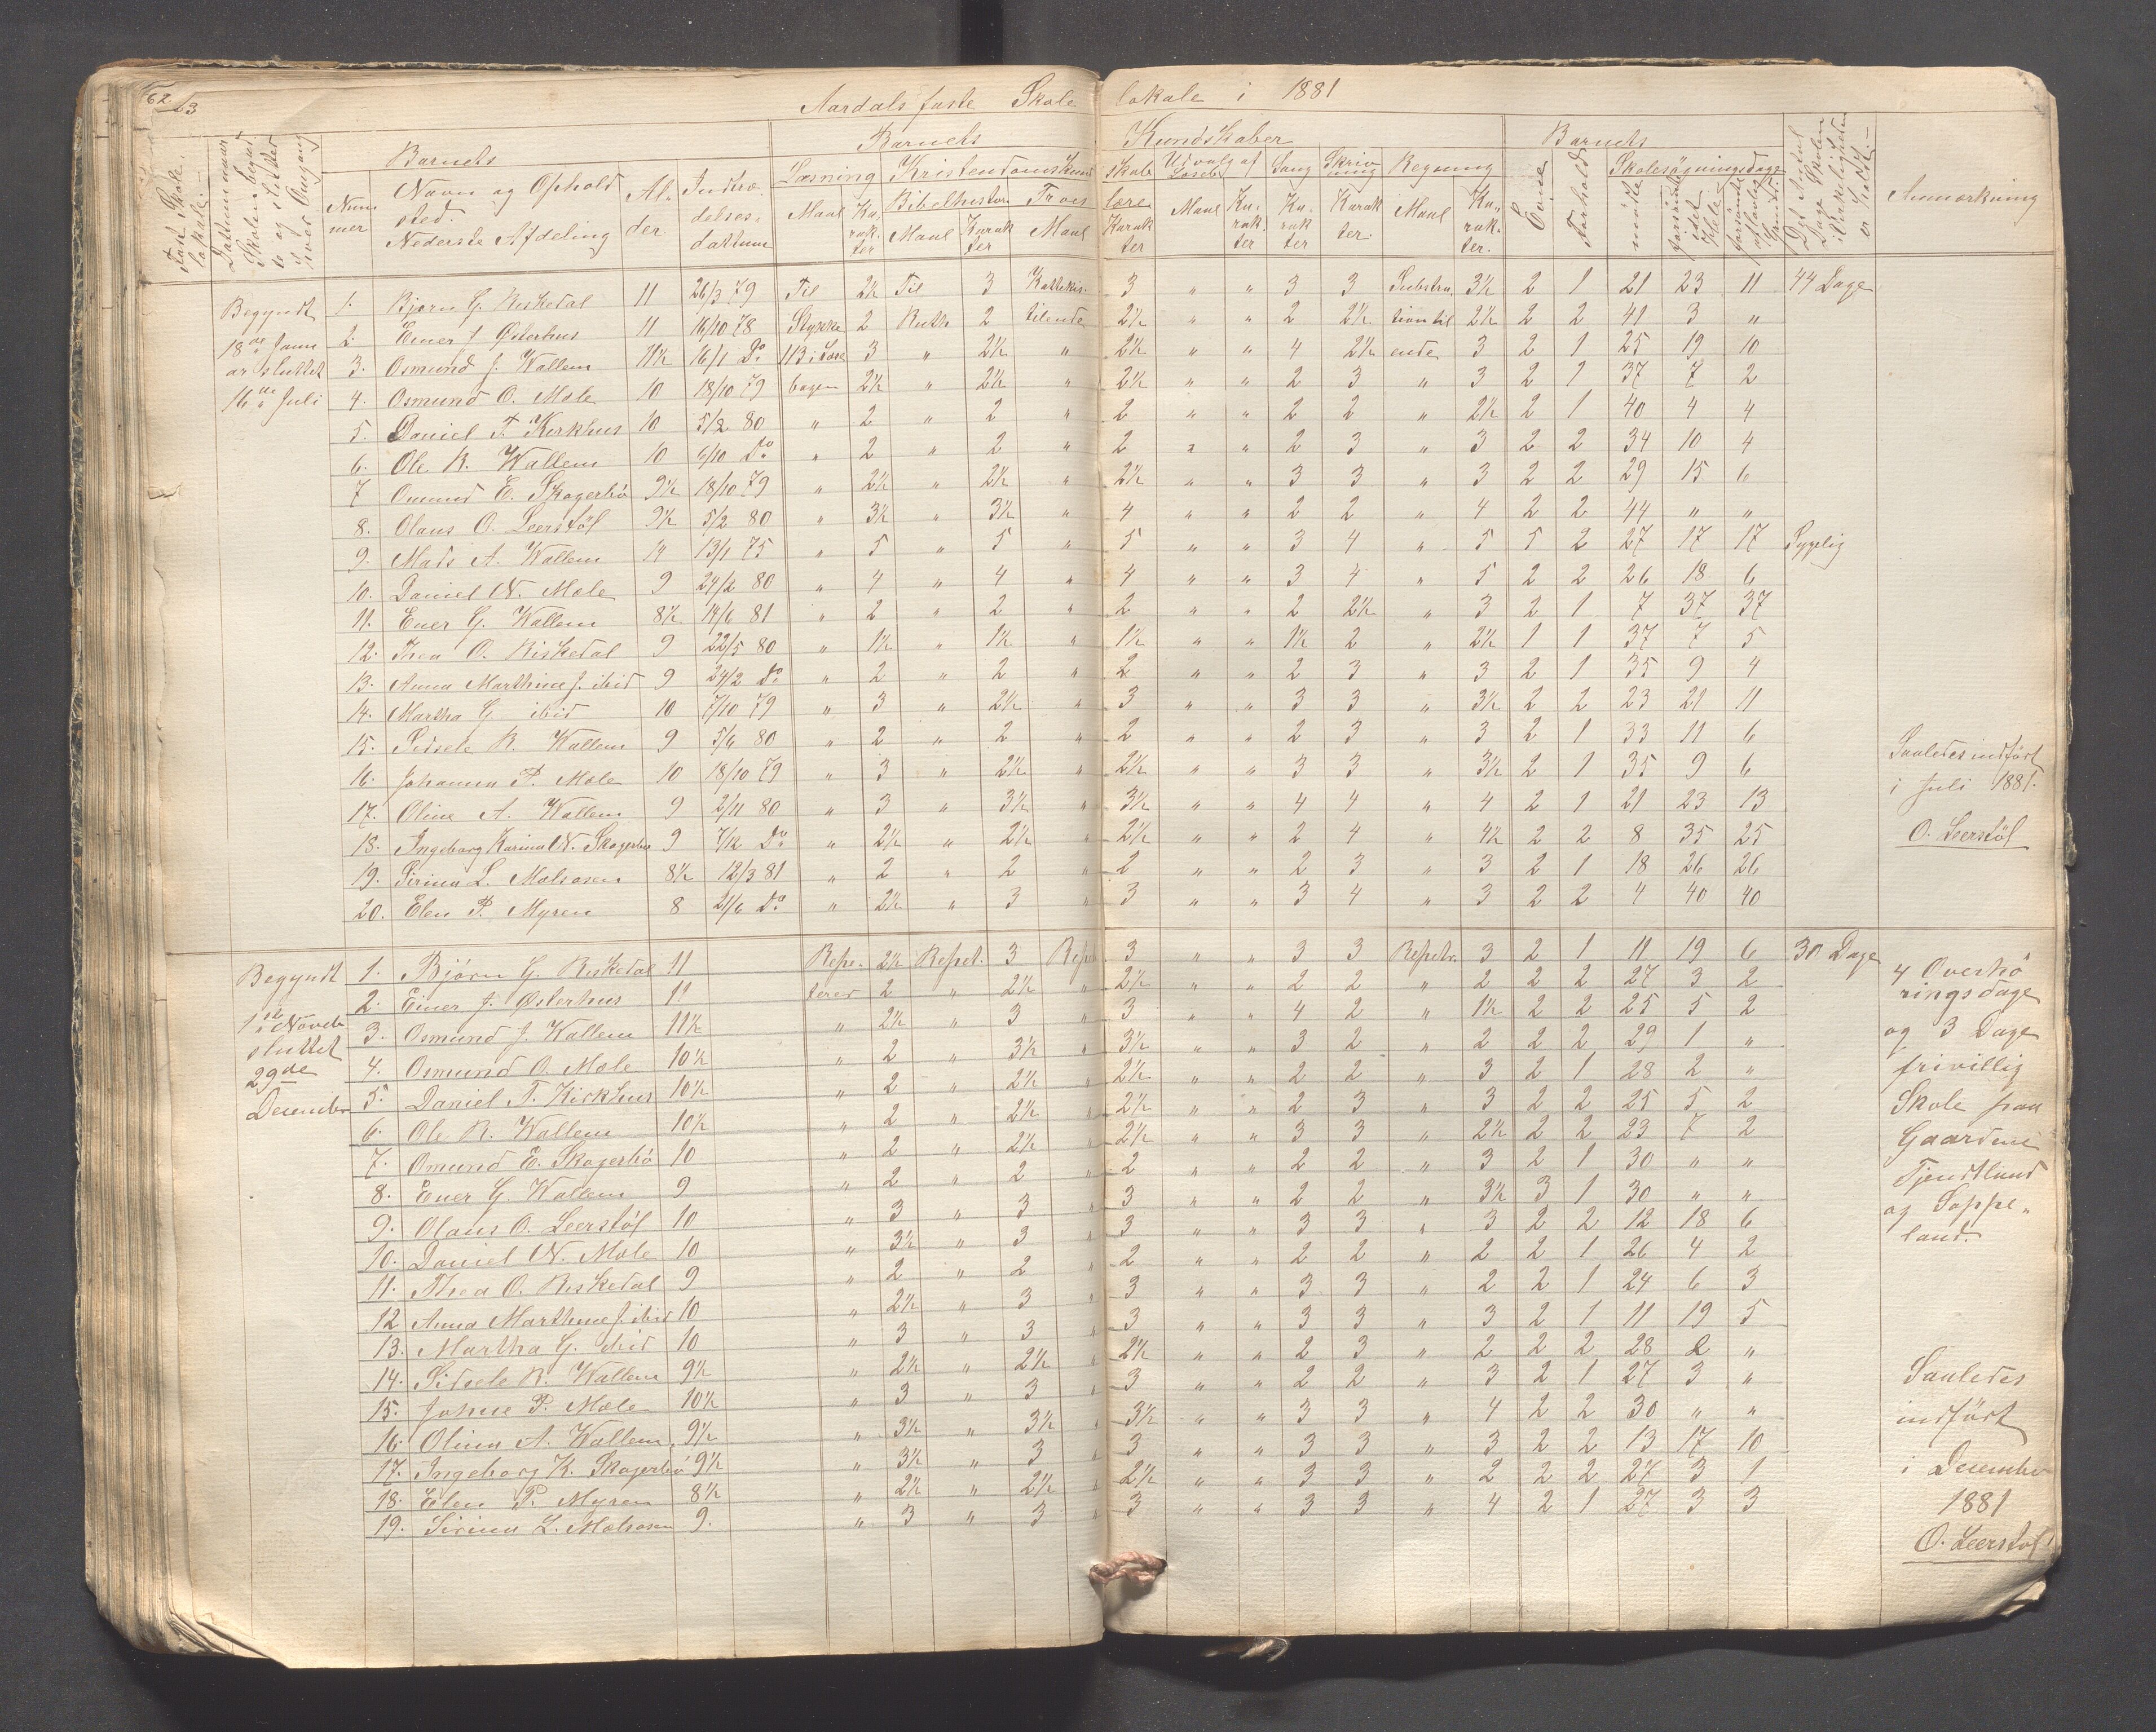 62 63
Aardals faste Skolelokale i 1881
Barnets Barnets Kundskaber Barnets
Fast Skolelokale. Datum naar Skolen begyndte og sluttet hver Omgang Nummer Navn og Opholdsted. Nederste Afdeling Alder. Indtrædelsesdattum Læsning Kristendomskund Skab Udvalg af Læseb. Sang Skrivning Regning Evne Forhold Skolesøgningsdage Anmærkning
Maal Karakter Bibelhistor Troes lære Maal Karakter Karakter Karakter. Maal Karakter. mødte forsømte i det Hele
Maal Karakter Maal Karakter
Begyndt 1. Bjørn G. Riskedal 11 26/3 79 Til 2½ Til 3 Kattekis- 3 " " 3 3 Substra. 3½ 2 1 21 23 11 44 Dage
18de Janu 2. Einer J Østerhus 11 16/10 78 Stykke 2 Ruth 2 tilende 2½ " " 2 2½ tion til 2½ 2 2 41 3 "
ar sluttet 3. Osmund J. Wallem 11½ 16/1 Do. 113 i Læse 3 " 2½ " 2½ " " 4 2½ ende 3 2 1 25 19 10
16de Juli 4. Osmund O. Mæle 10 18/10 79 bogen 2½ " 2½ " 2½ " " 2 3 " 3 2 1 37 7 2
5. Daniel T. Kirkhus 10 5/2 80 " 2 " 2 " 2 " " 2 2 " 2½ 2 1 40 4 4
6. Ole R. Wallem 10 6/10 Do " 2 " 2 " 2 " " 2 3 " 3 2 2 34 10 4
7 Omund E. Skogerbø 9½ 18/10 79 " 2½ " 2½ " 2½ " " 3 3 " 3 2 2 29 15 6
8. Olaus O. Leerstøl 9½ 5/2 80 " 3½ " 3½ " 4 " " 2 2 " 4 2 2 44 " "
9. Mads A. Wallem 14 13/1 75 " 5 " 5 " 5 " " 3 4 " 5 5 2 27 17 17 Sygelig
10. Daniel N. Mæle 9 24/2 80 " 4 " 4 " 4 " " 3 4 " 5 2 2 26 18 6
11. Ener G. Wallem 8½ 14/6 81 " 2 " 2 " 2 " " 2 2½ " 3 2 1 7 37 37
12. Thea O. Riskedal 9 22/5 80 " 1½ " 1½ " 1½ " " 1½ 2 " 2½ 1 1 37 7 5
13. Anna Marthine J. ibid 9 24/2 Do. " 2 " 2 " 2 " " 2 3 " 3 2 1 35 9 4
14. Martha G. ibid 10 7/10 79 " 3 " 2½ " 3 " " 3 3 " 3½ 2 2 23 21 11
15. Sidsele R. Wallem 9 5/6 80 " 2 " 2 " 2 " " 2 3 " 3 2 1 33 11 6
16. Johanna P. Mæle 10 18/10 79 " 3 " 2½ " 2½ " " 3 3 " 3½ 2 1 35 9 6 Saaledes indført
17. Oline A. Wallem 9 2/11 80 " 3 " 3½ " 3½ " " 4 4 " 4 2 1 21 23 13 i Juli 1881.
18. Ingeborg Karina N. Skogerbø 9 7/12 Do. " 2½ " 2½ " 2½ " " 2 4 " 4½ 2 2 8 35 25 O. Leerstøl
19. Sirina L. Mælsosen 8½ 12/3 81 " 2 " 2 " 2 " " 2 3 " 3 2 1 18 26 26
20. Elen P. Myren 8 21/6 Do. " 2½ " 3 " 3 " " 3 4 " 3 2 2 4 40 40
Begyndt 1. Bjørn G. Riskedal 11 Repe- 2½ Repet. 3 Rept 3 " " 3 3 Repetr. 3 2 1 11 19 6 30 Dage 4 Overhø
2. Einer J. Østerhus 11 terer 2 " 2½ " 2½ " " 2 2 " 2 2 2 27 3 2 ringsdage
1ste Novelr 3. Osmund J. Wallem 11½ " 2½ " 3 " 3 " " 4 2 " 1½ 2 2 25 5 2 og 3 Dage
sluttet 4. Osmund O. Mæle 10½ " 2 " 3½ " 3½ " " 3 2 " 2 2 2 29 1 " frivillig
29de 5. Daniel T. Kirkhus 10½ " 2 " 2½ " 2½ " " 2 2 " 3 2 1 28 2 " Skole paa
December 6. Ole R. Wallem 10½ " 2 " 2½ " 2½ " " 2 3 " 3 2 2 25 5 2 Gaardene
7. Omund E. Skogerbø 10 " 2 " 2½ " 2½ " " 3 3 " 2½ 2 2 23 7 2 Tjendtland
8. Ener G. Wallem 9 " 2 " 2 " 2 " " 2 2 " 3 2 1 30 " " og Soppe-
9. Olaus O. Leerstøl 10 " 3 " 3 " 3 " " 2 2 " 3½ 3 1 30 " " land.
10. Daniel N. Mæle 10 " 3½ " 3 " 3 " " 3 3 " 3 2 2 12 18 6
11. Thea O. Riskedal 9 " 2 " 2 " 2 " " 2 2 " 2 2 1 26 4 2
12 Anna Marthine J. ibid 10 " 2½ " 3 " 3 " " 3 3 " 2 2 1 24 6 3
13. Martha G. ibid 10 " 3 " 3 " 3 " " 3 3 " 3 2 1 11 19 5
14. Sidsele R. Wallem 9½ " 2½ " 2½ " 2½ " " 2 3 " 2 2 2 28 2 " Saaledes
15. Johne P. Mæle 10½ " 3 " 3 " 3 " " 2 2 " 3 2 1 27 3 " indført
16. Olina A. Wallem 9½ " 3½ " 3½ " 3½ " " 3 3 " 4 2 2 30 " " i December
17. Ingeborg K. Skogerbø 9½ " 3½ " 3 " 3 " " 3 3 " 3 2 2 13 17 10 1881
18. Elen P. Myren 8½ " 2½ " 2½ " 2½ " " 3 3 " 2 2 2 27 3 1 O. Leerstøl
19. Sirina L. Mælsosen 9. " 3 " 3 " 3 " " 3 3 " 4 2 1 27 3 3